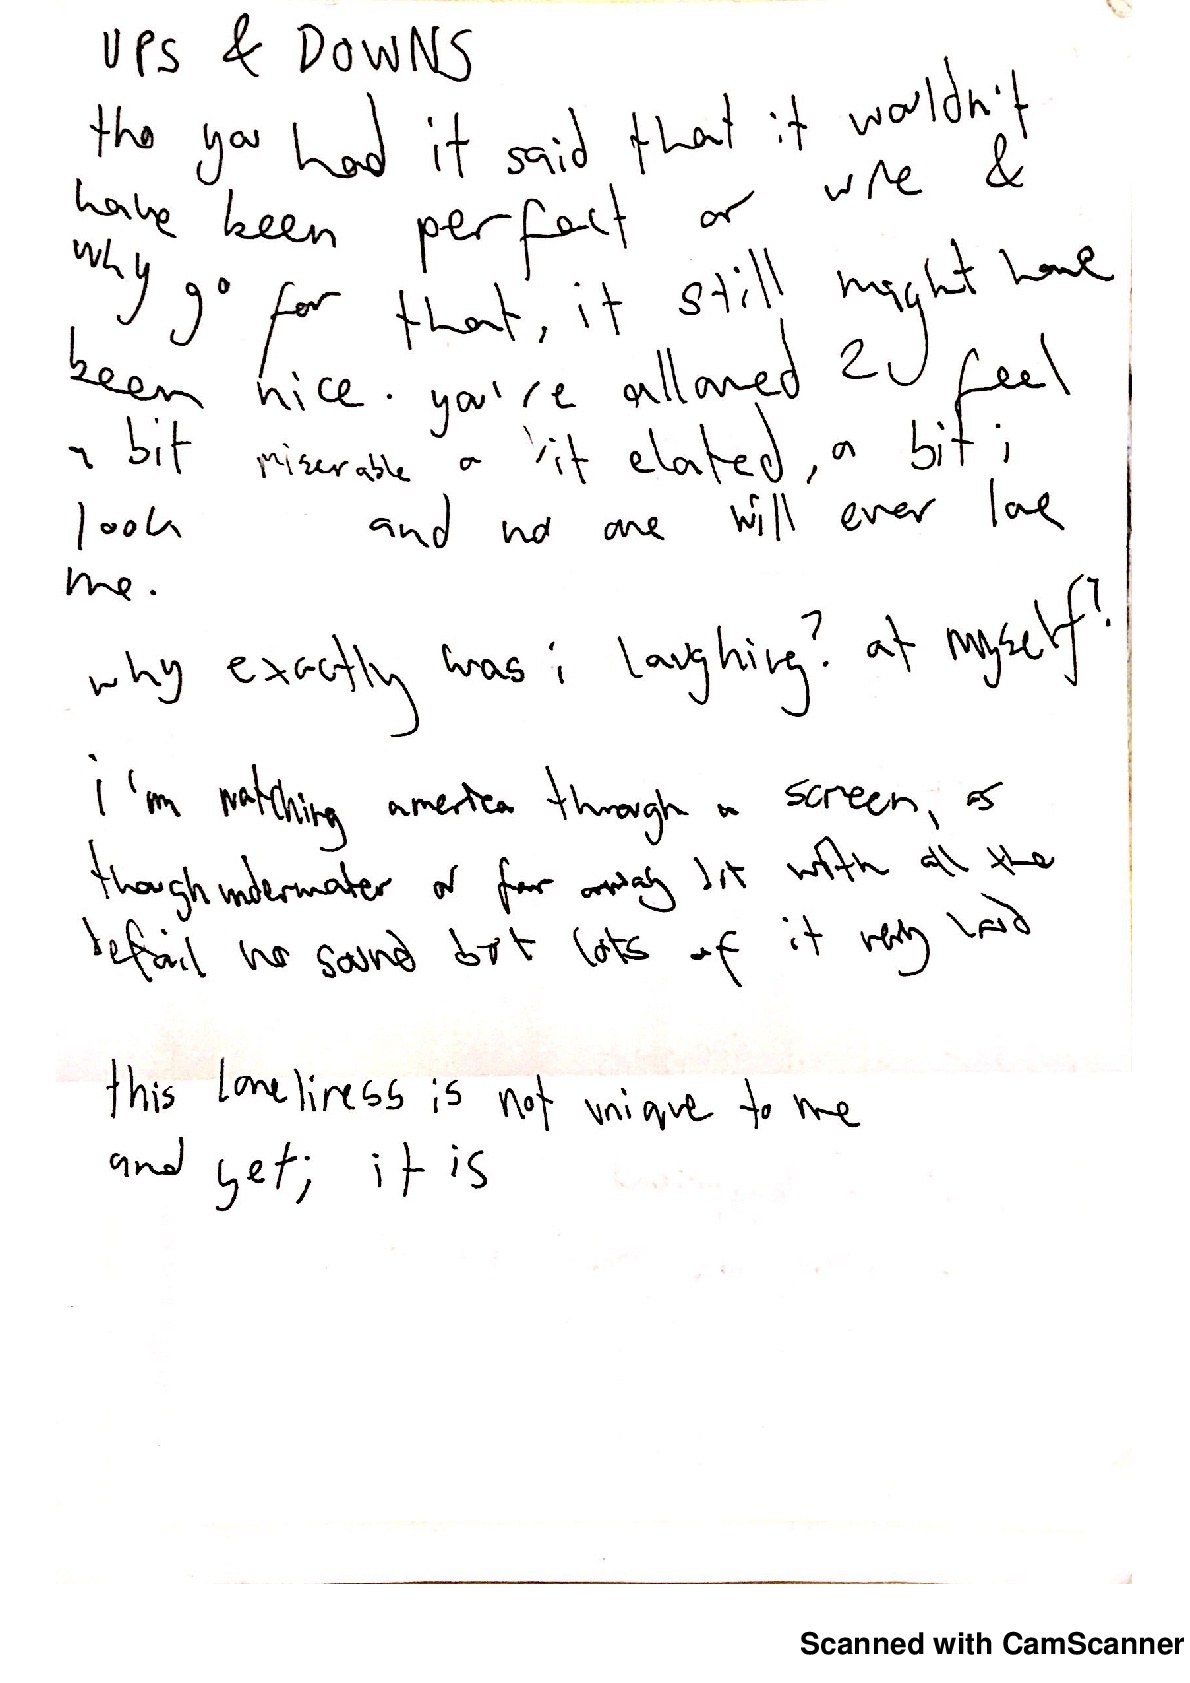 UPS & DOWNS
tho you had it said that it wouldn't
have been perfect or &
why go for that, it still might have
been nice. you're allowed 2 feel
a bit miserable a bit elated, a bit i
look and no one will ever love
me.
why exactly was i laughing? at myself?
i'm watching america through a screen, as
though underwater or far away bit with all the
detail no sound but lots of it very
this loneliness is not unique to me
and yet; it is
Scanned with CamScanner